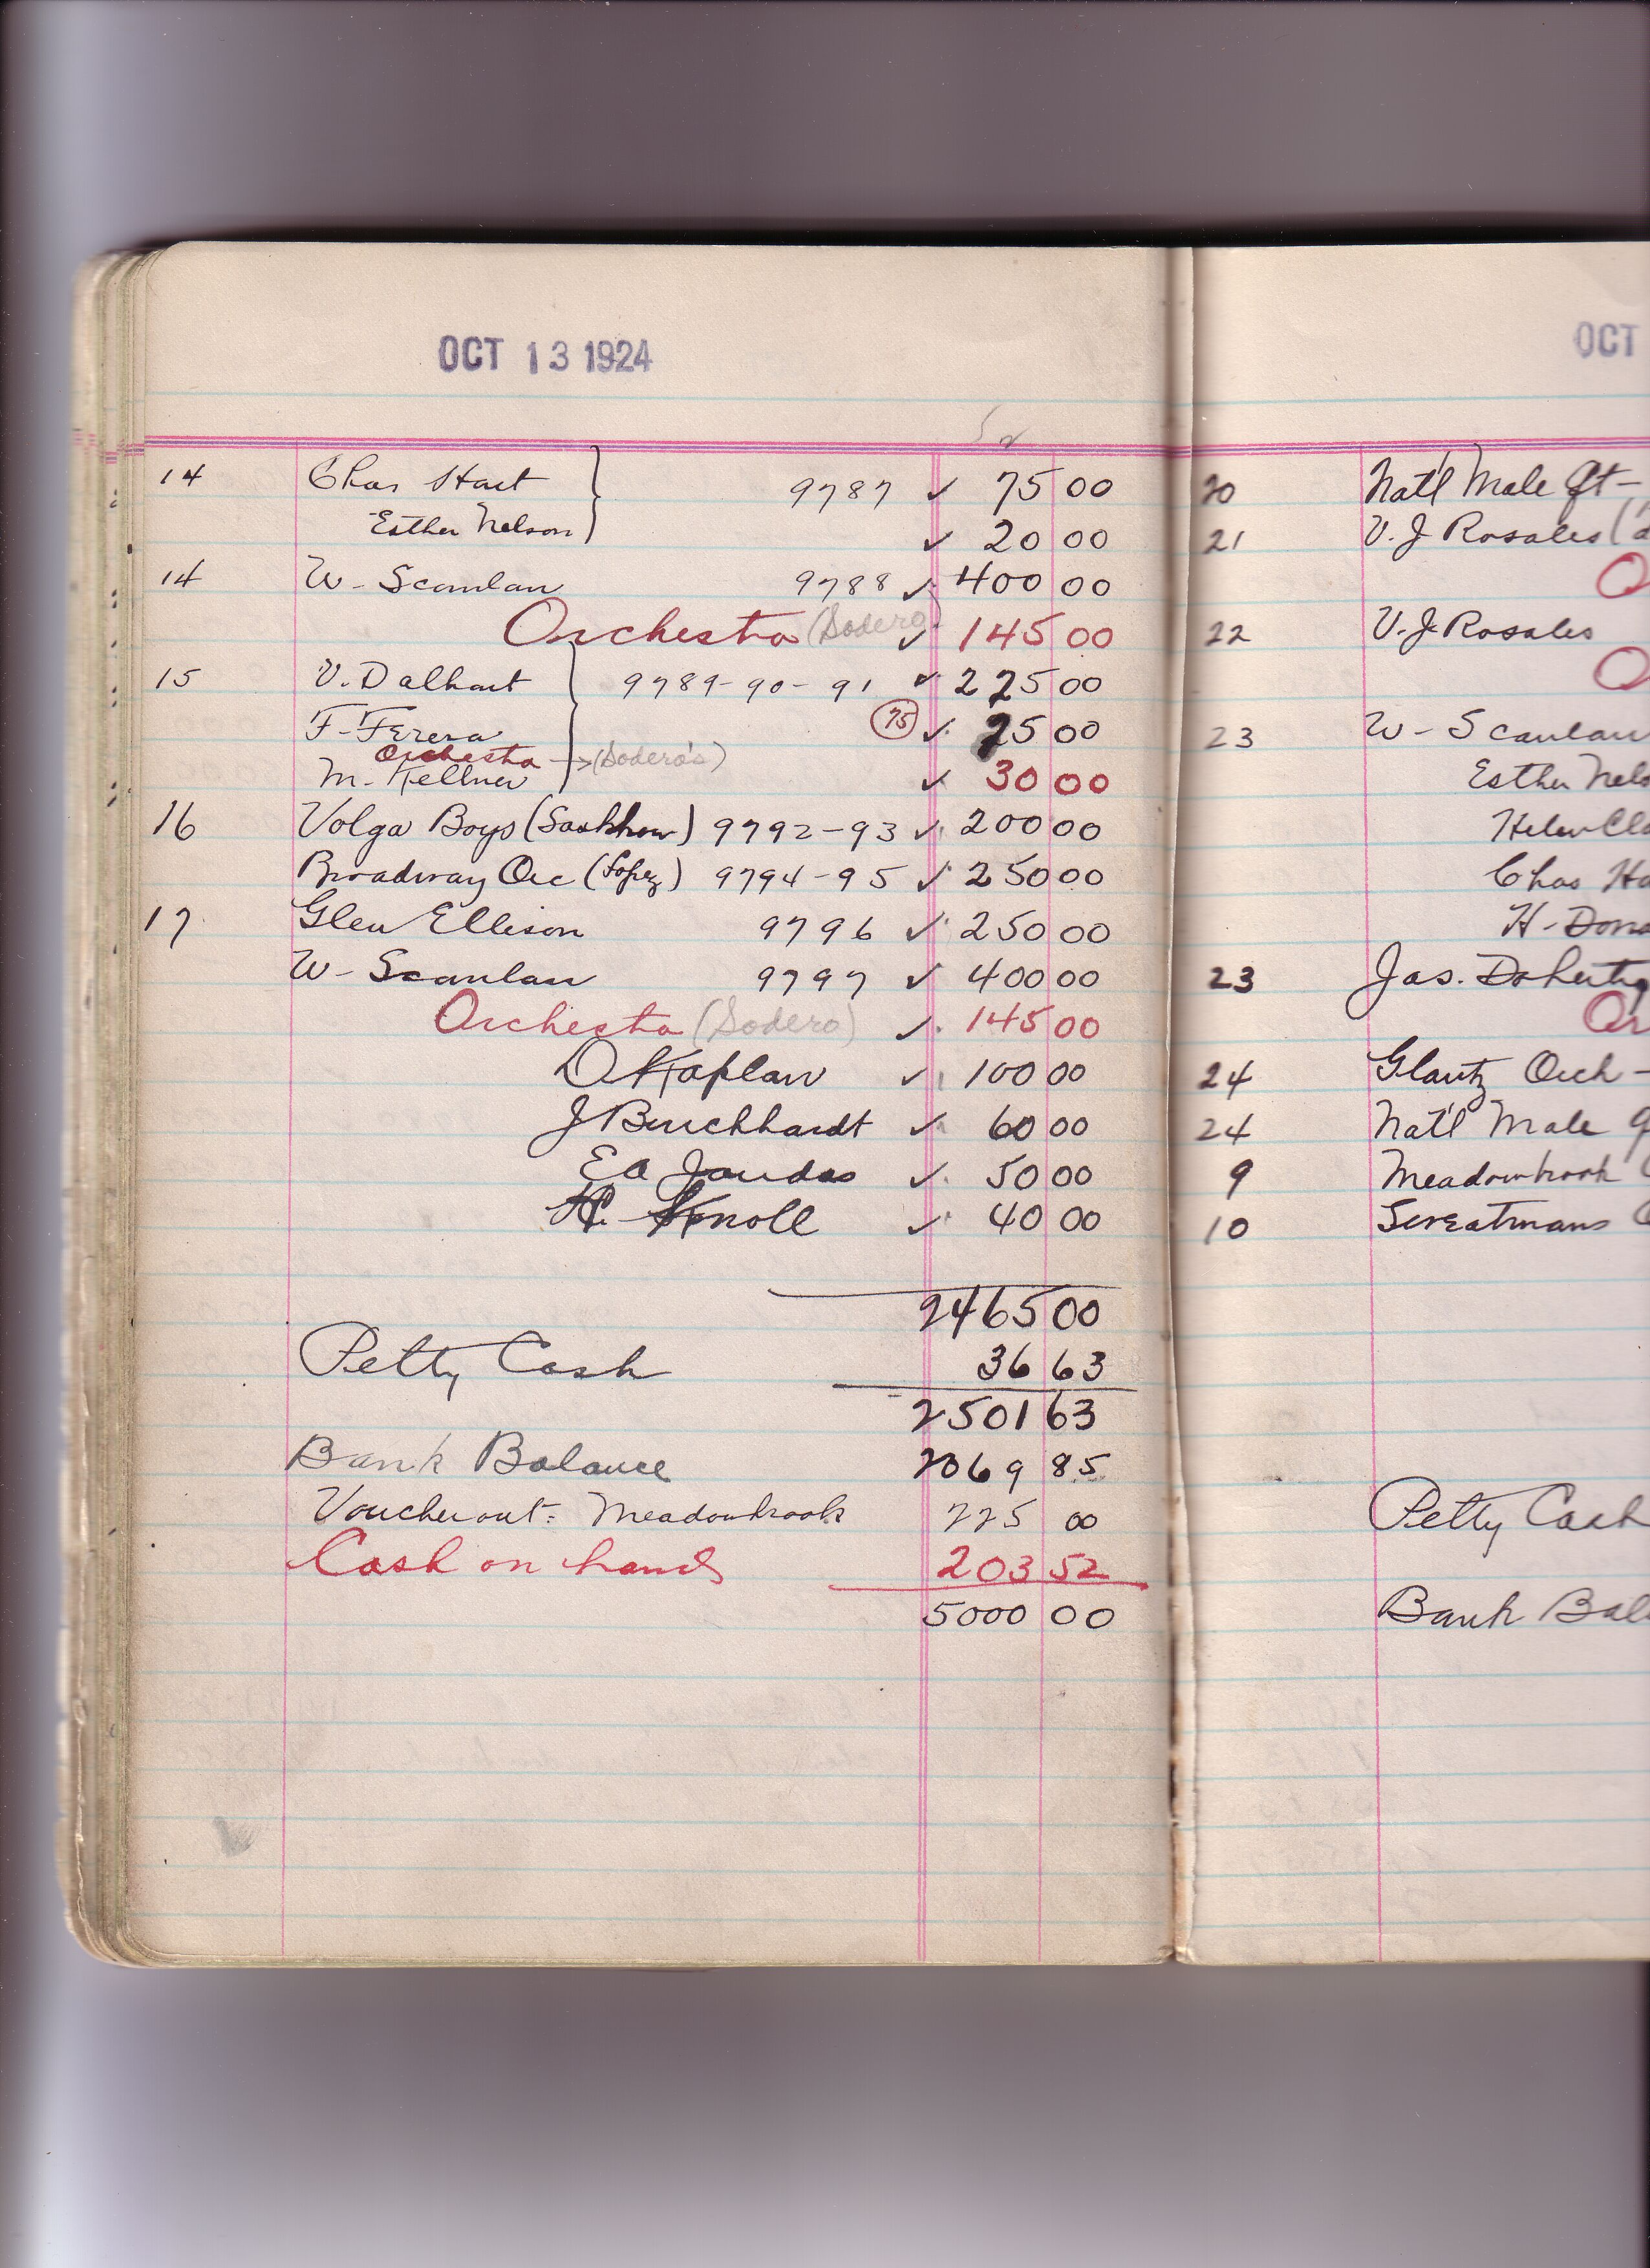 OCT 13 1924
14 Chas Hart } 9787 ✓ 75 00
Esther Nelson ✓ 20 00
14 W- Scanlan 9788 ✓ 400 00
Orchestra (Sodero) ✓ 145 00
15 V. Dalhart } 9789-90-91 ✓ 225 00
F- Ferera (75) ✓ 75 00
Orchestra → (Sodero's)
M. Kellner ✓ 30 00
16 Volga Boys 9792-93 ✓ 200 00
Broadway Orc (Lopez) 9794-95 ✓ 250 00
17 Glen Ellison 9796 ✓ 250 00
W- Scanlan 9797 ✓ 400 00
Orchestra (Sodero) ✓ 145 00
D Kaplan ✓ 100 00
J Burckhardt ✓ 60 00
Ed Jaudas ✓ 50 00
H. Knoll ✓ 40 00
2465 00
Petty Cash 36 63
2501 63
Bank Balance 2069 85
Voucher out: Meadowbrook 225 00
Cash on hand 203 52
5000 00
OCT
20 Nat'l Male Qt-
21 V. J Rosales (
O
22 V. J. Rosales
O
23 W- Scanlan
Esther Nels
Helen Cla
Chas Ha
H- Dona
23 Jas. Doherty
Or
24 Glantz Orch -
24 Nat'l Male Q
9 Meadowbrook
10 Screatmans
Petty Cash
Bank Bal